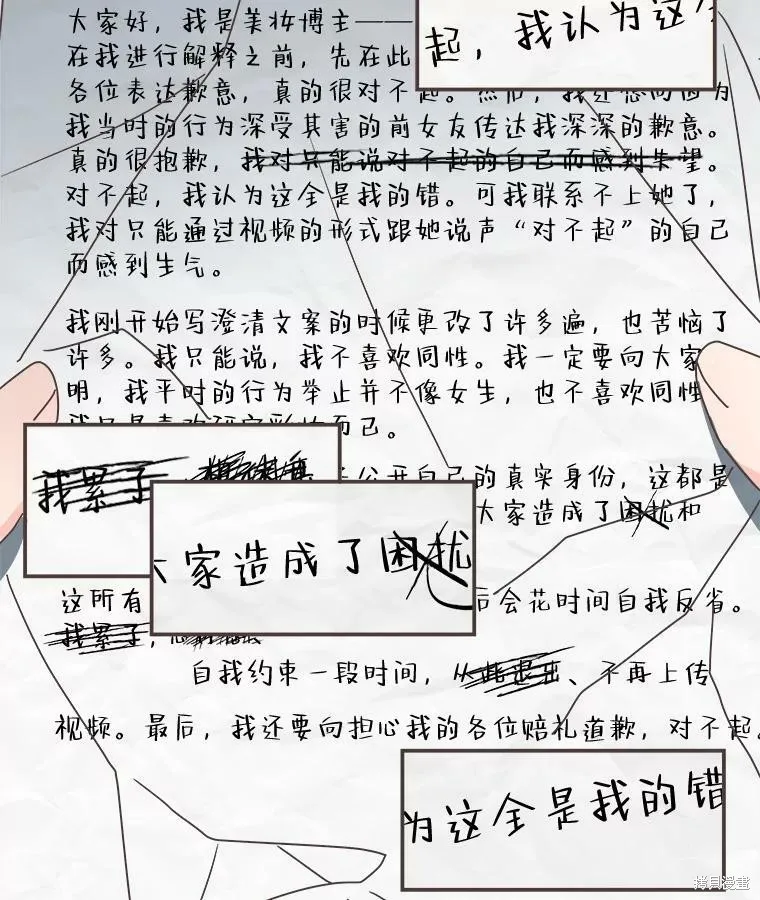 大家好，我是美妆博主——
起，我认为这全
在我进行解释之前，先在此
各位表达歉意，真的很对不起。然后，我还想向因为
我当时的行为深受其害的前女友传达我深深的歉意。
真的很抱歉，我对只能说对不起的自己而感到失望。
对不起，我认为这全是我的错。可我联系不上她了，
我对只能通过视频的形式跟她说声“对不起”的自己
而感到生气。
我刚开始写澄清文案的时候更改了许多遍，也苦恼了
许多。我只能说，我不喜欢同性。我一定要向大家
明，我平时的行为举止并不像女生，也不喜欢同性
我只是喜欢研究彩妆而已。
公开自己的真实身份，这都是
我累了
大家造成了困扰和
大家造成了困扰
这所有
后会花时间自我反省。
我累了，
自我约束一段时间，从此退出、不再上传
视频。最后，我还要向担心我的各位赔礼道歉，对不起。
为这全是我的错
拷貝漫畫